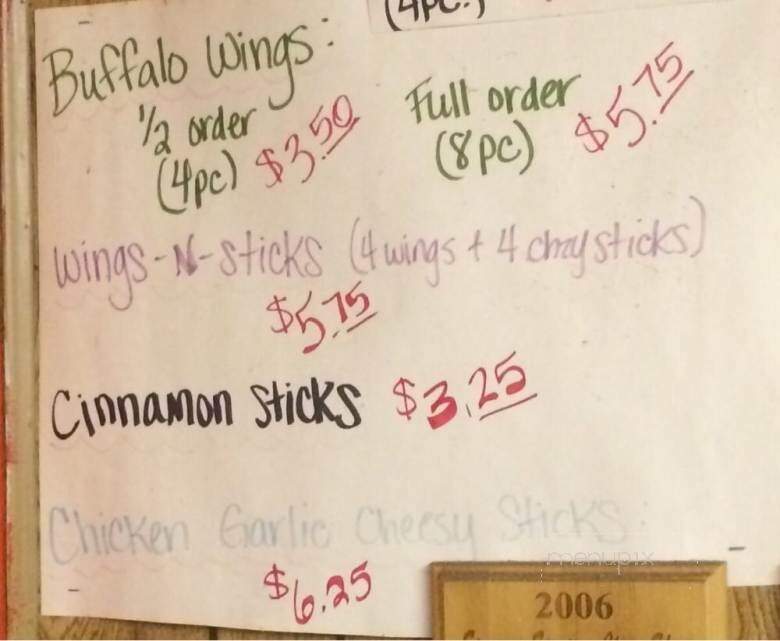 (4pc.)
Buffalo Wings:
1/2 order Full order
(4pc) $3.50 (8pc) $5.75
Wings-N-Sticks (4 wings + 4 chzy sticks)
$5.75
Cinnamon Sticks $3.25
Chicken Garlic Cheesy Sticks:
$6.25
menupix
2006